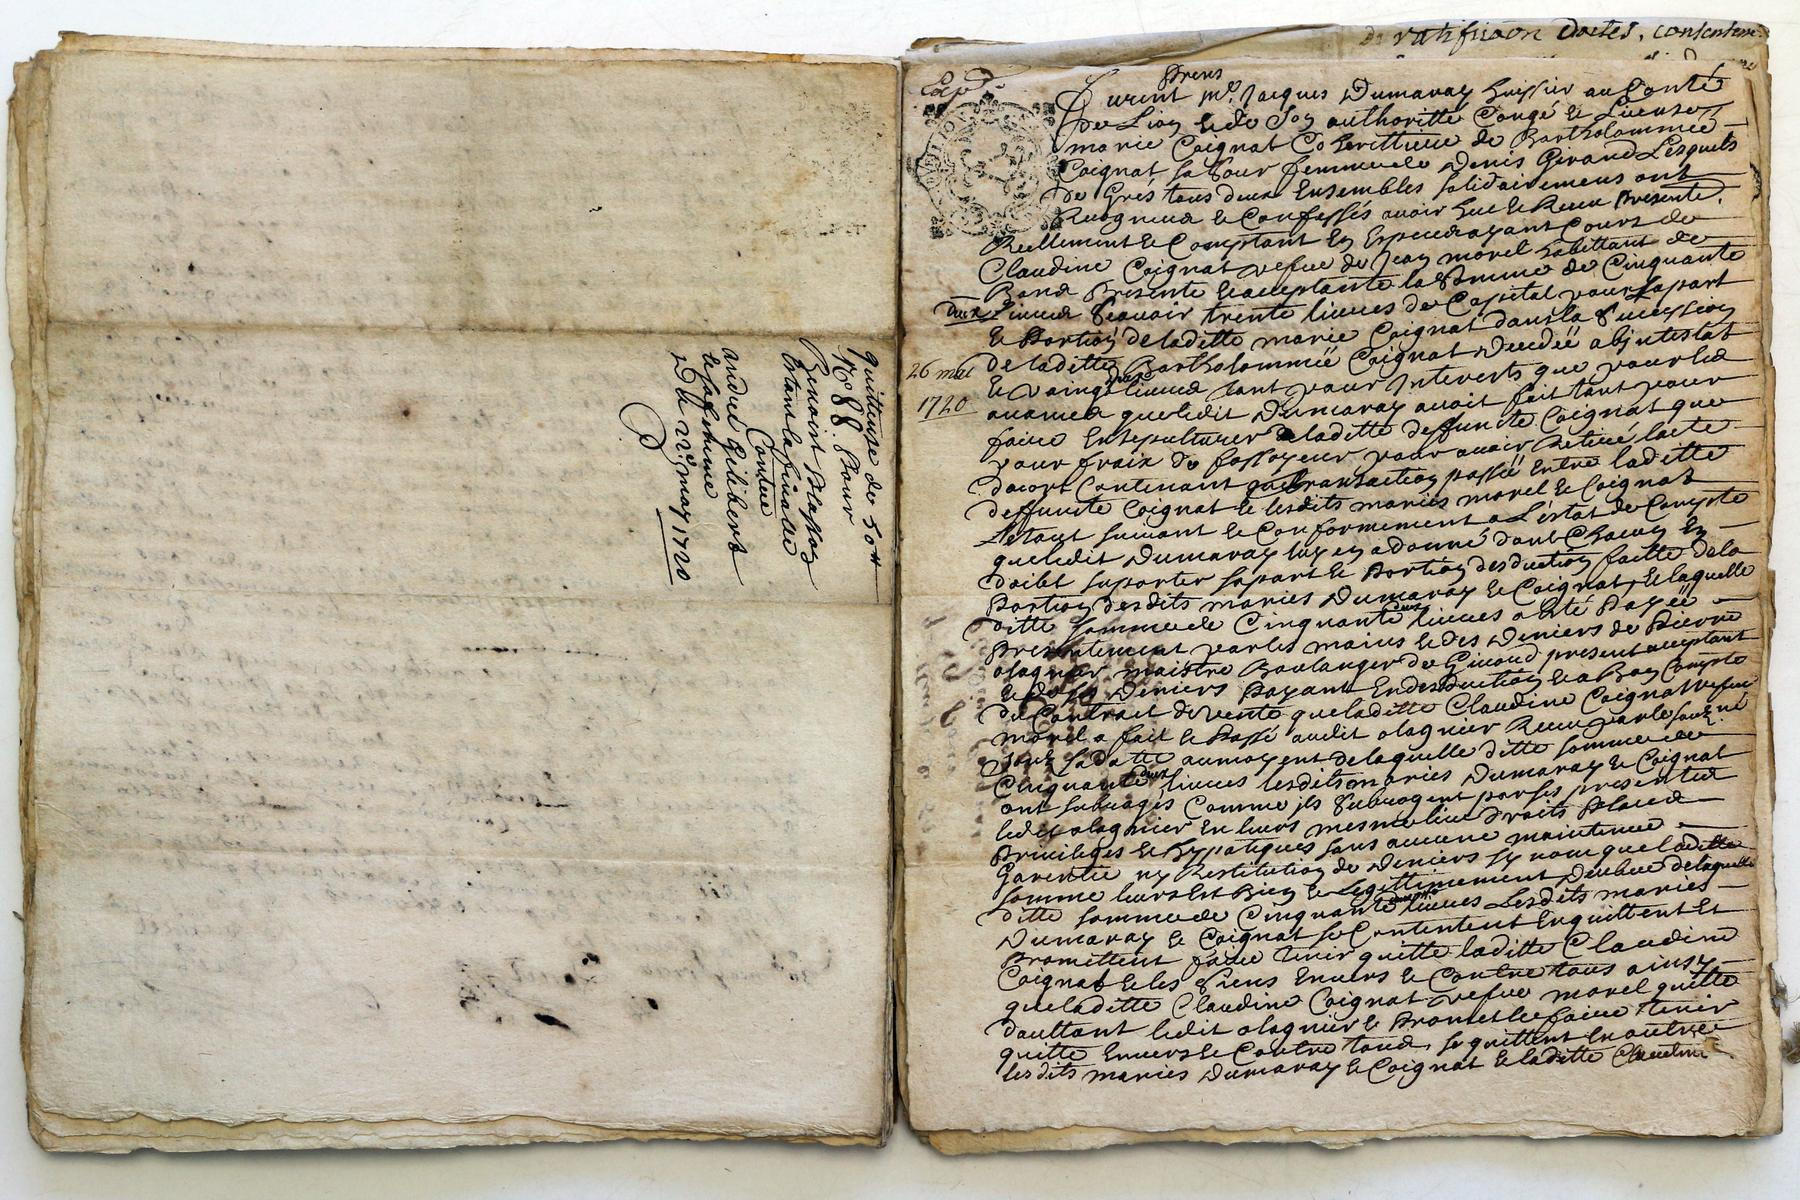 quittance de 50ᵗᵗ
Pour
Benoist
Contre
andre Gilibert
Sa femme
Du 22ᵉ may 1720
de ratifficaon dactes, consentem
Exp
Furent Prens mᵉ Jacques Dumaray huissier au Conté
De Lion & de Son authoritté Congé & License
marie Coignat Coherittiere de Bartholommée
Coignat sa Sœur femme de Denis Girand Lesquels
De Grés tous deux Ensembles solidairement ont
Recogneus & Confessés avoir Eue & Receu Presente
Reellement & Comptant En Espece ayant Cours de
Claudine Coignat vefue de Jean morel habittant de
Presente & acceptante la Somme de Cinquante
deux Liures Scauoir trente liures de Capital pour sa part
& Portion de laditte marie Coignat dans la Succession
26 mai
de laditte Bartholommée Coignat decedéé abjntestat
1720
& vaingt deux liures tant pour Interests que pour les
auances que ledit Dumaray auoit fait tant pour
faire Ensepulturer de laditte deffuncte Coignat que
pour fraix de fossoyeur pour auoir Retiré lacte
dacort Contenant transaction passée Entre laditte
deffuncte Coignat & lesdits mariés morel & Coignat
Le tout suiuant & Conformement a Lestat de Compte
que ledit Dumaray luy en a donné dont Chacun En
doibt suporter sa part & Portion desduction faitte de la
Portion desdits mariés Dumaray & Coignat, & laquelle
ditte somme de Cinquante deux liures a Esté Payéé
Presentement par les mains & des Deniers de Pierre
olagnier maistre Boulanger de Giuord present acceptant
& de ses Deniers Payant En desduction & a Bon Compte
du Contrat de vente que laditte Claudine Coignat vefue
morel a fait & Passé audit olagnier Receu par le souz.né
souz sa datte au moyent de laquelle ditte somme de
Cinquante deux liures lesdits mariés Dumaray & Coignat
ont subrogés Comme ils Subrogent par ses presentes
ledit olagnier En leurs mesme lieu Droits Places
Priuileges & hypotiques sans aucune maintenue
Garentie ny Restitution de Deniers sy non que laditte
somme leurs Est Bien & Legittimement Deubue de laquelle
ditte somme de Cinquante deux liures Lesdits mariés
Dumaray & Coignat se Contentent En quittent Et
Promettent faire tenir quitte laditte Claudine
Coignat & les Siens Enuers & Contre tous ainsy
que laditte Claudine Coignat vefue morel quitte
daultant ledit olagnier & Promet le faire tenir
quitte Enuers & Contre tous, se quittent En oultre
lesdits mariés Dumaray & Coignat & laditte Claudine